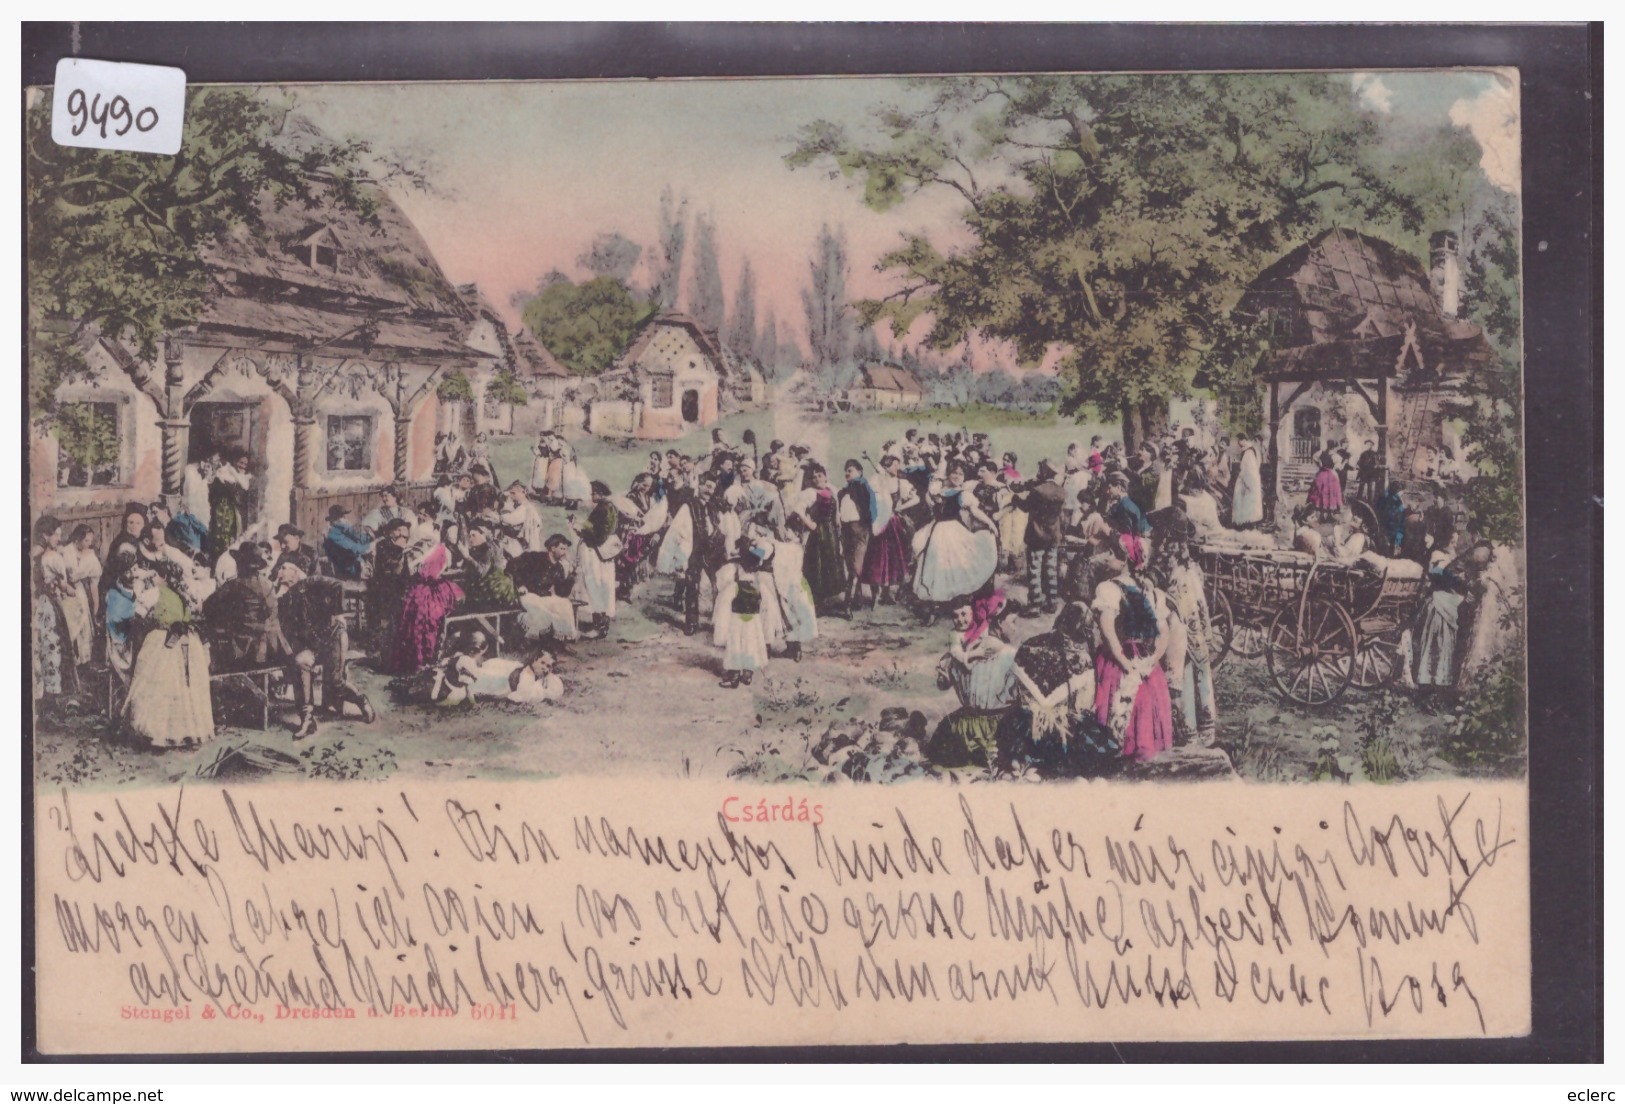 9490
Csárdás
Liebste Marizi! Bin namenlos müde daher nur einige Worte
morgen fahre ich Wien, wo erst die grosse Mühe, arbeit kommt
an Freund Rudi herz. Grüsse Dich umarmt küsst deine Rosa
Stengel & Co., Dresden u. Berlin 6041
www.delcampe.net
eclerc